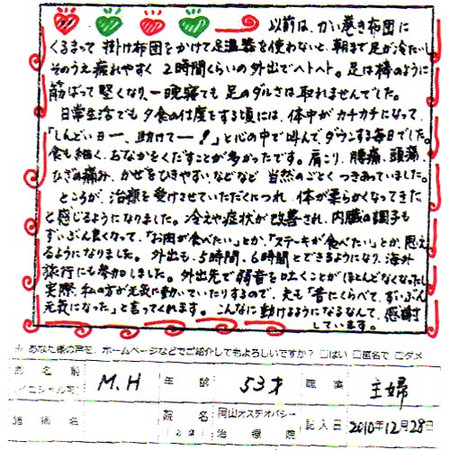 以前は、かい巻き布団に
くるまって 掛け布団をかけて足温器を使わないと、朝まで足が冷たい。
そのうえ疲れやすく 2時間くらいの外出でヘトヘト。足は棒のように
筋ばって堅くなり、一晩寝ても 足のダルさは取れませんでした。
日常生活でも夕食の仕度をする頃には、体中がカチカチになって、
「しんどい日ー、助けてー!」と心の中で叫んでダウンする毎日でした。
食も細く、おなかをくだすことが多かったです。肩こり、腰痛、頭痛、
ひざの痛み、かぜをひきやすいなどなど 当然のごとくつきあっていました。
ところが、治療を受けさせていただくにつれ、体が柔らかくなってきた
と感じるようになりました。冷えや症状が改善され、内臓の調子も
ずいぶん良くなって、「お肉が食べたい」とか、「ステーキが食べたい」とか、思え
るようになりました。外出も、5時間、6時間とできるようになり、海外
旅行にも参加しました。外出先で弱音を吐くことがほとんどなくなった。
実際、私の方が元気に動いていたりするので、夫も「昔にくらべて、ずいぶん
元気になった」と言ってくれます。こんなに動けるようになるなんて、感謝
しています。
※ あなた様の声を、ホームページなどでご紹介してもよろしいですか? □はい □匿名で □ダメ
お名前 (イニシャル可) M.H 年齢 53才 職業 主婦
施術名 院名 岡山オステオパシー治療院 記入日 2010年12月28日